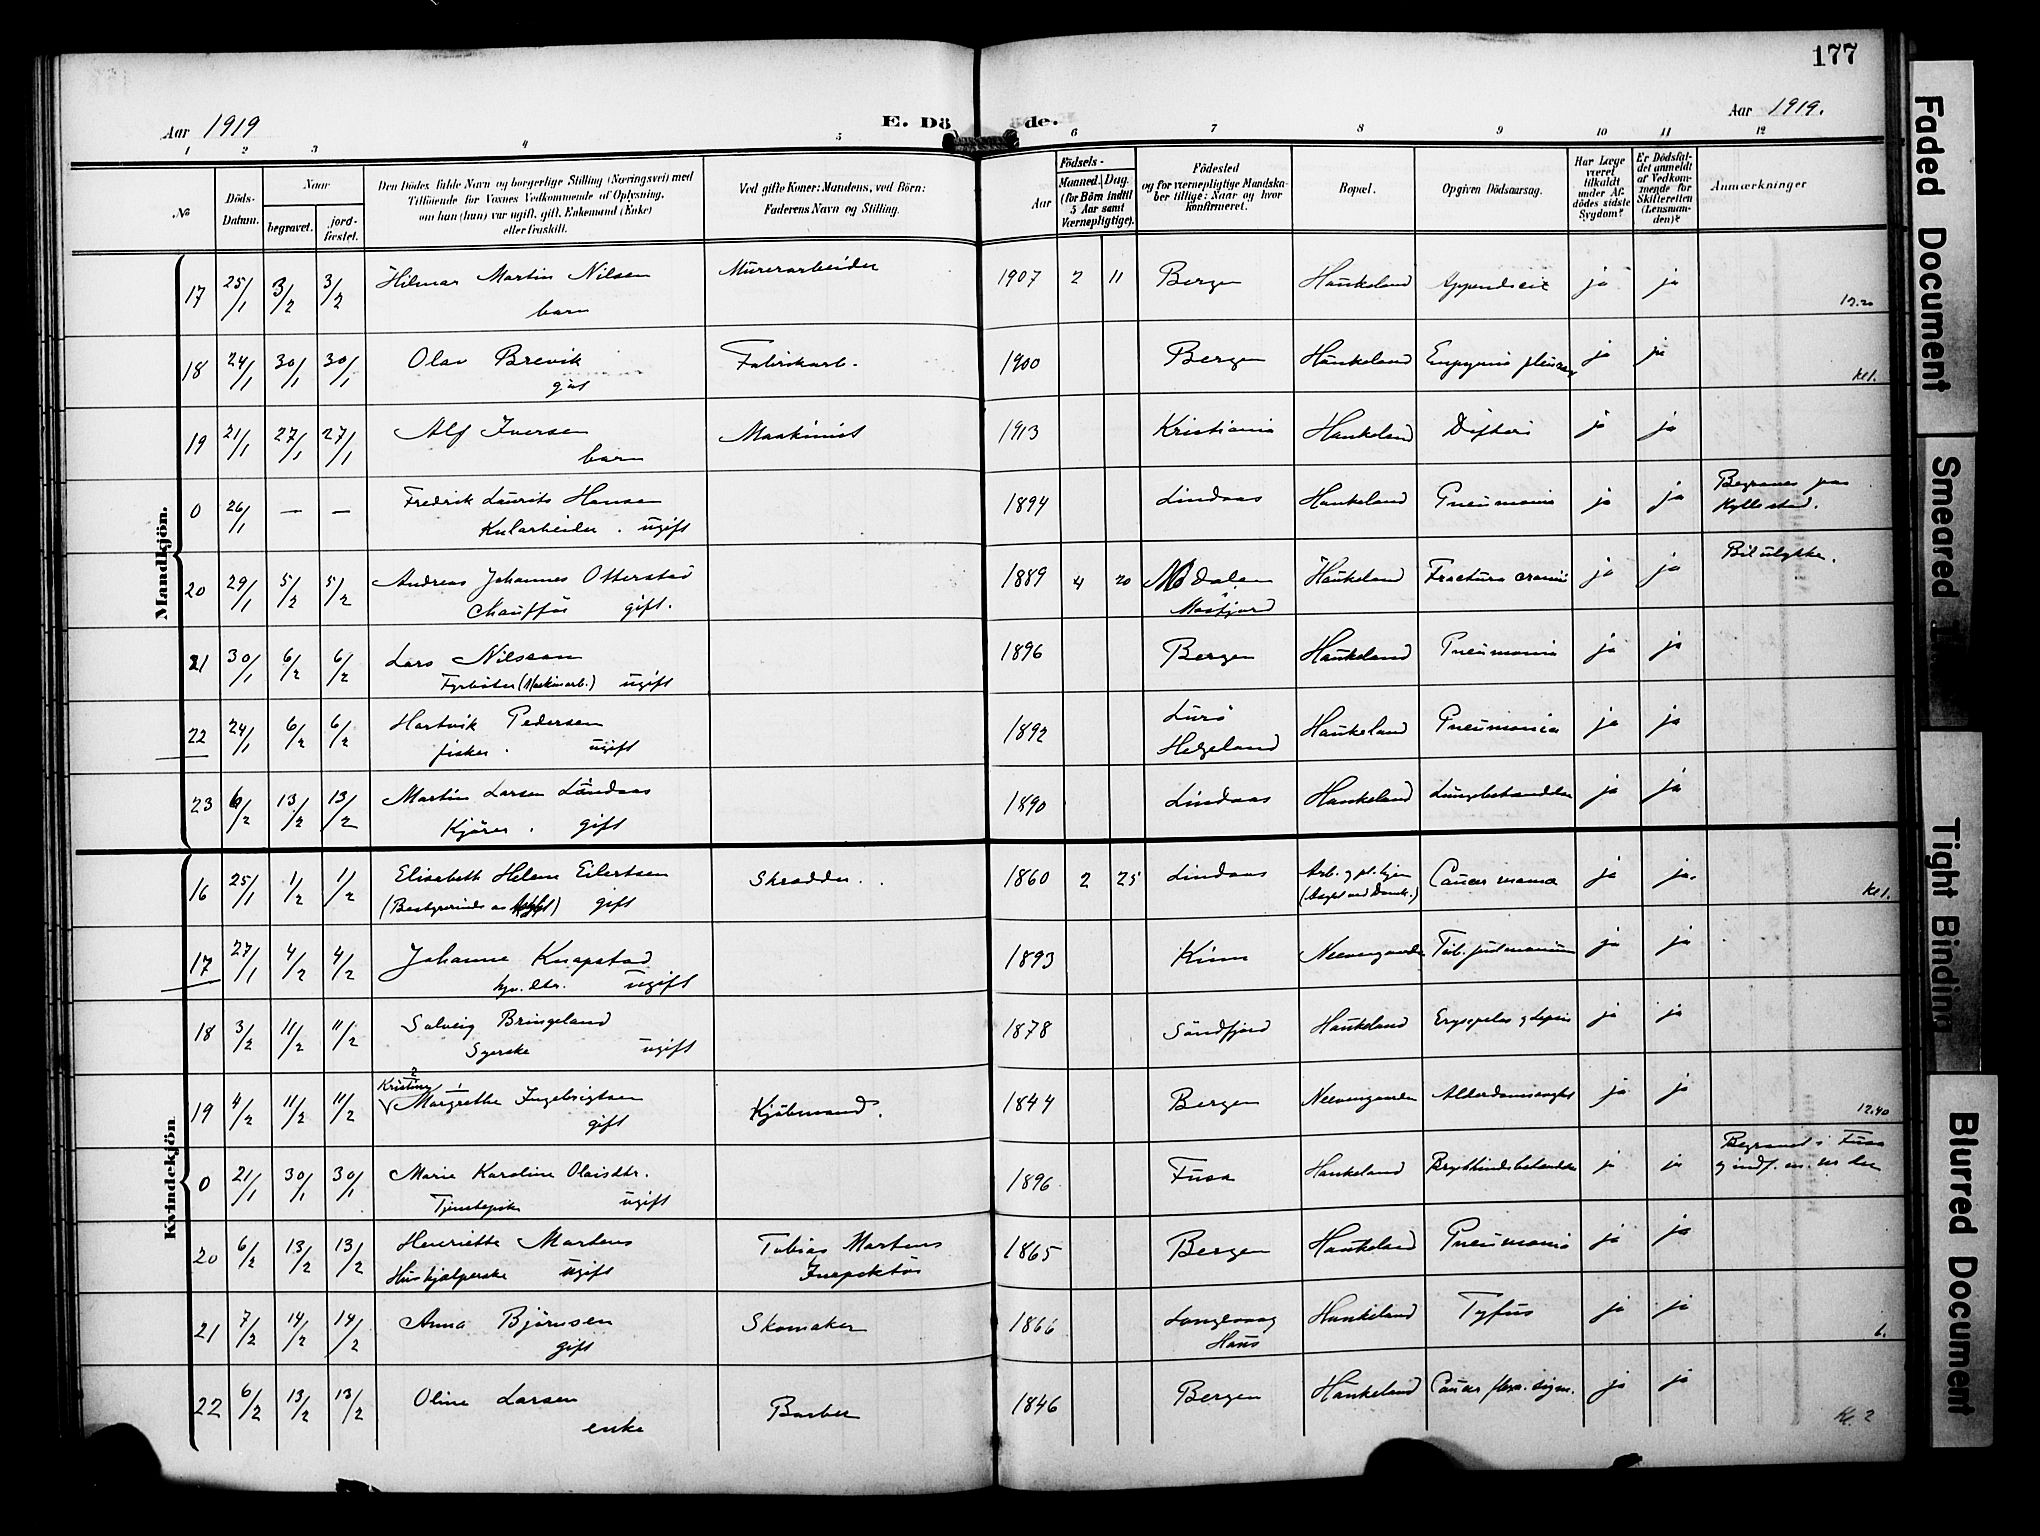 177
Aar 1919
E. Döde.
Aar 1919.
1 2 3 4 5 6 7 8 9 10 11 12
№
Döds-Datum.
Naar
begravet.
jordfæstet.
Den Dödes fulde Navn og borgerlige Stilling (Næringsvei) med
Tilföiende for Voxnes Vedkommende af Oplysning,
om han (hun) var ugift, gift, Enkemand (Enke)
eller fraskilt.
Ved gifte Koner: Mandens, ved Börn:
Faderens Navn og Stilling.
Födsels-
Aar
Maaned. Dag.
(for Börn indtil
5 Aar samt
Værnepligtige).
Födested
og for værnepligtige Mandskaber tillige: Naar og hvor
konfirmeret.
Bopæl.
Opgiven Dödsaarsag.
Har Læge været tilkaldt under Afdödes sidste Sygdom?
Er Dödsfaldet anmeldt af Vedkommende for Skifteretten (Lensmanden)?
Anmærkninger
Mandkjön.
17 25/1 3/2 3/2 Hilmar Martin Nilsen Murerarbeider 1907 2 11 Bergen Haukeland Appendicit ja ja
barn 12.20
18 24/1 30/1 30/1 Olav Brevik Fabrikarb. 1900 Bergen Haukeland Empyema pleurae ja ja
gut kl 1.
19 21/1 27/1 27/1 Alf Iversen Maskinist 1913 Kristiania Haukeland Difteri ja ja
barn
0 26/1 — — Fredrik Laurits Hansen 1894 Lindaas Haukeland Pneumonia ja ja Begraves paa
Kularbeider. ugift Hyllestad.
20 29/1 5/2 5/2 Andreas Johannes Otterstad 1889 4 20 Modalen Haukeland Fractura cranii ja ja Bilulykke.
Chauffør gift. Mosfjord
21 30/1 6/2 6/2 Lars Nilssen 1896 Bergen Haukeland Pneumonia ja ja
Fyrbøter (Maskinarb.) ugift
22 24/1 6/2 6/2 Hartvik Pedersen 1892 Lurö Haukeland Pneumonia ja ja
fisker. ugift Helgeland
23 6/2 13/2 13/2 Martin Larsen 1890 Lindaas Haukeland Lungebetændelse ja ja
Kjörer. gift
Kvindekjön
16 25/1 1/2 1/2 Elisabeth Helene Eilertsen Skrædder. 1860 2 25 Lindaas Cancer mama ja ja.
gift kl 1.
17 27/1 4/2 4/2 Johanne Knapstad 1893 Kinn Neevengaarden Tub. pulmonum ja ja
ugift
18 3/2 11/2 11/2 Solveig Bringeland 1878 Söndfjord Haukeland Erysipelas og Sepsis ja ja
Syerske ugift
19 4/2 11/2 11/2 Kristine 2 Margrethe 1 Ingebrigtsen Kjöbmand. 1844 Bergen Neevengaarden Alderdomssvaghet ja ja
gift 12.40
0 21/1 30/1 30/1 Marie Karoline Olaisdtr. 1896 Fusa Haukeland Brysthindebetændelse ja ja Begravet i Fusa
Tjenestepike ugift
20 6/2 13/2 13/2 Henriette Martens Tobias Martens 1865 Bergen Haukeland Pneumonia ja ja
Hushjælperske ugift Inspektör
21 7/2 14/2 14/2 Anna Björnsen Skomaker 1866 Haukeland Tyfus ja ja
gift Haus 6.
22 6/2 13/2 13/2 Oline Larsen Barber 1846 Bergen Haukeland Cancer flex. sigm. ja ja
enke kl. 2
Faded Document
Smeared
Tight Binding
Blurred Document